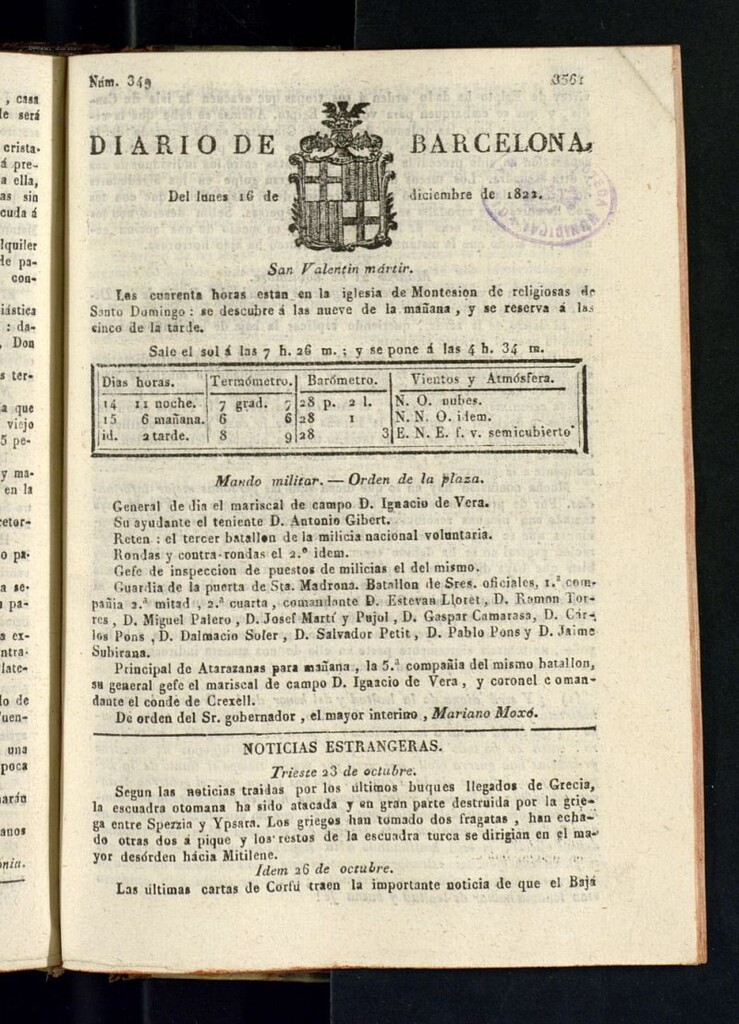 Núm. 349
3561
DIARIO DE BARCELONA,
Del lunes 16 de diciembre de 1822.
San Valentin mártir.
Las cuarenta horas estan en la iglesia de Montesion de religiosas de
Santo Domingo : se descubre á las nueve de la mañana , y se reserva á las
cinco de la tarde.
Sale el sol á las 7 h. 26 m. ; y se pone á las 4 h. 34 m.
Dias horas. Termómetro. Barómetro. Vientos y Atmósfera.
14 11 noche. 7 grad. 7 28 p. 2 l. N. O. nubes.
15 6 mañana. 6 6 28 1 N. N. O. idem.
id. 2 tarde. 8 9 28 3 E. N. E. f. v. semicubierto
Mando militar. — Orden de la plaza.
General de dia el mariscal de campo D. Ignacio de Vera.
Su ayudante el teniente D. Antonio Gibert.
Reten : el tercer batallon de la milicia nacional voluntaria.
Rondas y contra-rondas el 2.º idem.
Gefe de inspeccion de puestos de milicias el del mismo.
Guardia de la puerta de Sta. Madrona. Batallon de Sres. oficiales, 1.ª com-
pañia 2.ª mitad , 2.ª cuarta , comandante D. Estevan Lloret , D. Ramon Tor-
res , D. Miguel Palero , D. Josef Martí y Pujol , D. Gaspar Camarasa, D. Cár-
los Pons , D. Dalmacio Soler , D. Salvador Petit , D. Pablo Pons y D. Jaime
Subirana.
Principal de Atarazanas para mañana , la 5.ª compañia del mismo batallon,
su general gefe el mariscal de campo D. Ignacio de Vera , y coronel coman-
dante el conde de Crexell.
De orden del Sr. gobernador , el mayor interino , Mariano Moxó.
NOTICIAS ESTRANGERAS.
Trieste 23 de octubre.
Segun las noticias traidas por los últimos buques llegados de Grecia,
la escuadra otomana ha sido atacada y en gran parte destruida por la grie-
ga entre Spezzia y Ypsara. Los griegos han tomado dos fragatas , han echa-
do otras dos á pique y los restos de la escuadra turca se dirigian en el ma-
yor desórden hácia Mitilene.
Idem 26 de octubre.
Las últimas cartas de Corfú traen la importante noticia de que el Bajá